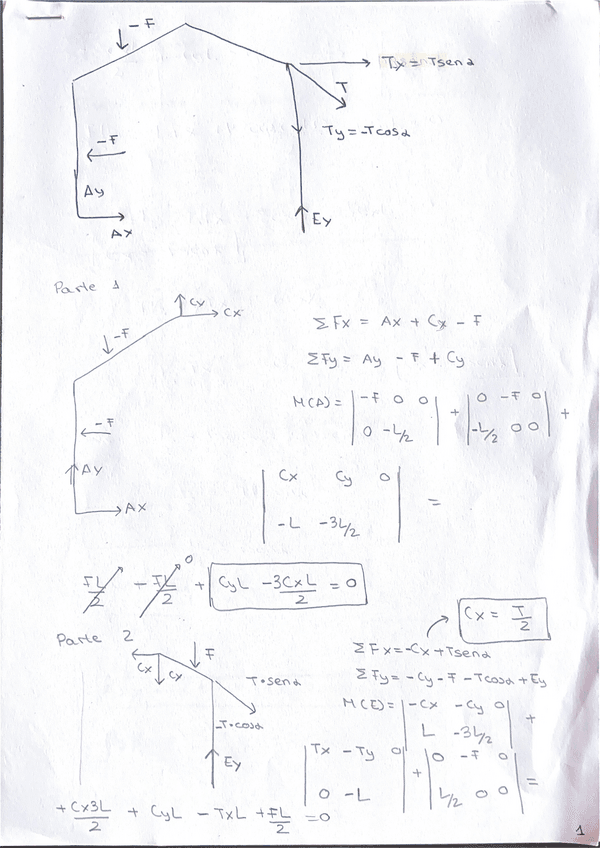 -F
Tx = Tsenα
T
Ty = -Tcosα
-F
Ay
Ax
Ey
Parte 1
Cy
Cx
-F
-F
Ay
Ax
ΣFx = Ax + Cx - F
ΣFy = Ay - F + Cy
M(A) = | -F 0 0 | + | 0 -F 0 | +
| 0 -L/2 | | -L/2 0 0 |
| Cx Cy 0 | =
| -L -3L/2 |
FL/2 - FL/2 + CyL - 3CxL/2 = 0
0
Cx = T/2
Parte 2
F
Cx
Cx
T·senα
-T·cosα
Ey
ΣFx = -Cx + Tsenα
ΣFy = -Cy - F - Tcosα + Ey
M(E) = | -Cx -Cy 0 | +
| L -3L/2 |
| Tx -Ty 0 | + | 0 -F 0 | =
| 0 -L | | L/2 0 0 |
+Cx3L/2 + CyL - TxL + FL/2 = 0
1